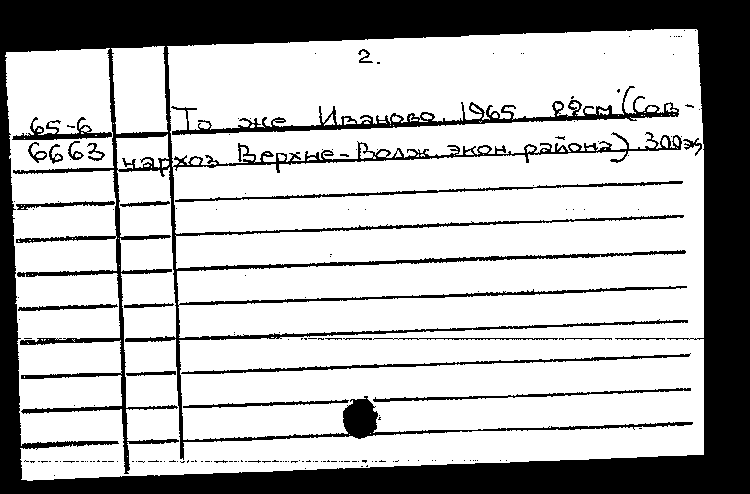 2.
65-6 То же Иваново. 1965. 22см (Сов-
6663 нархоз Верхне-Волж. экон. района). 300эк